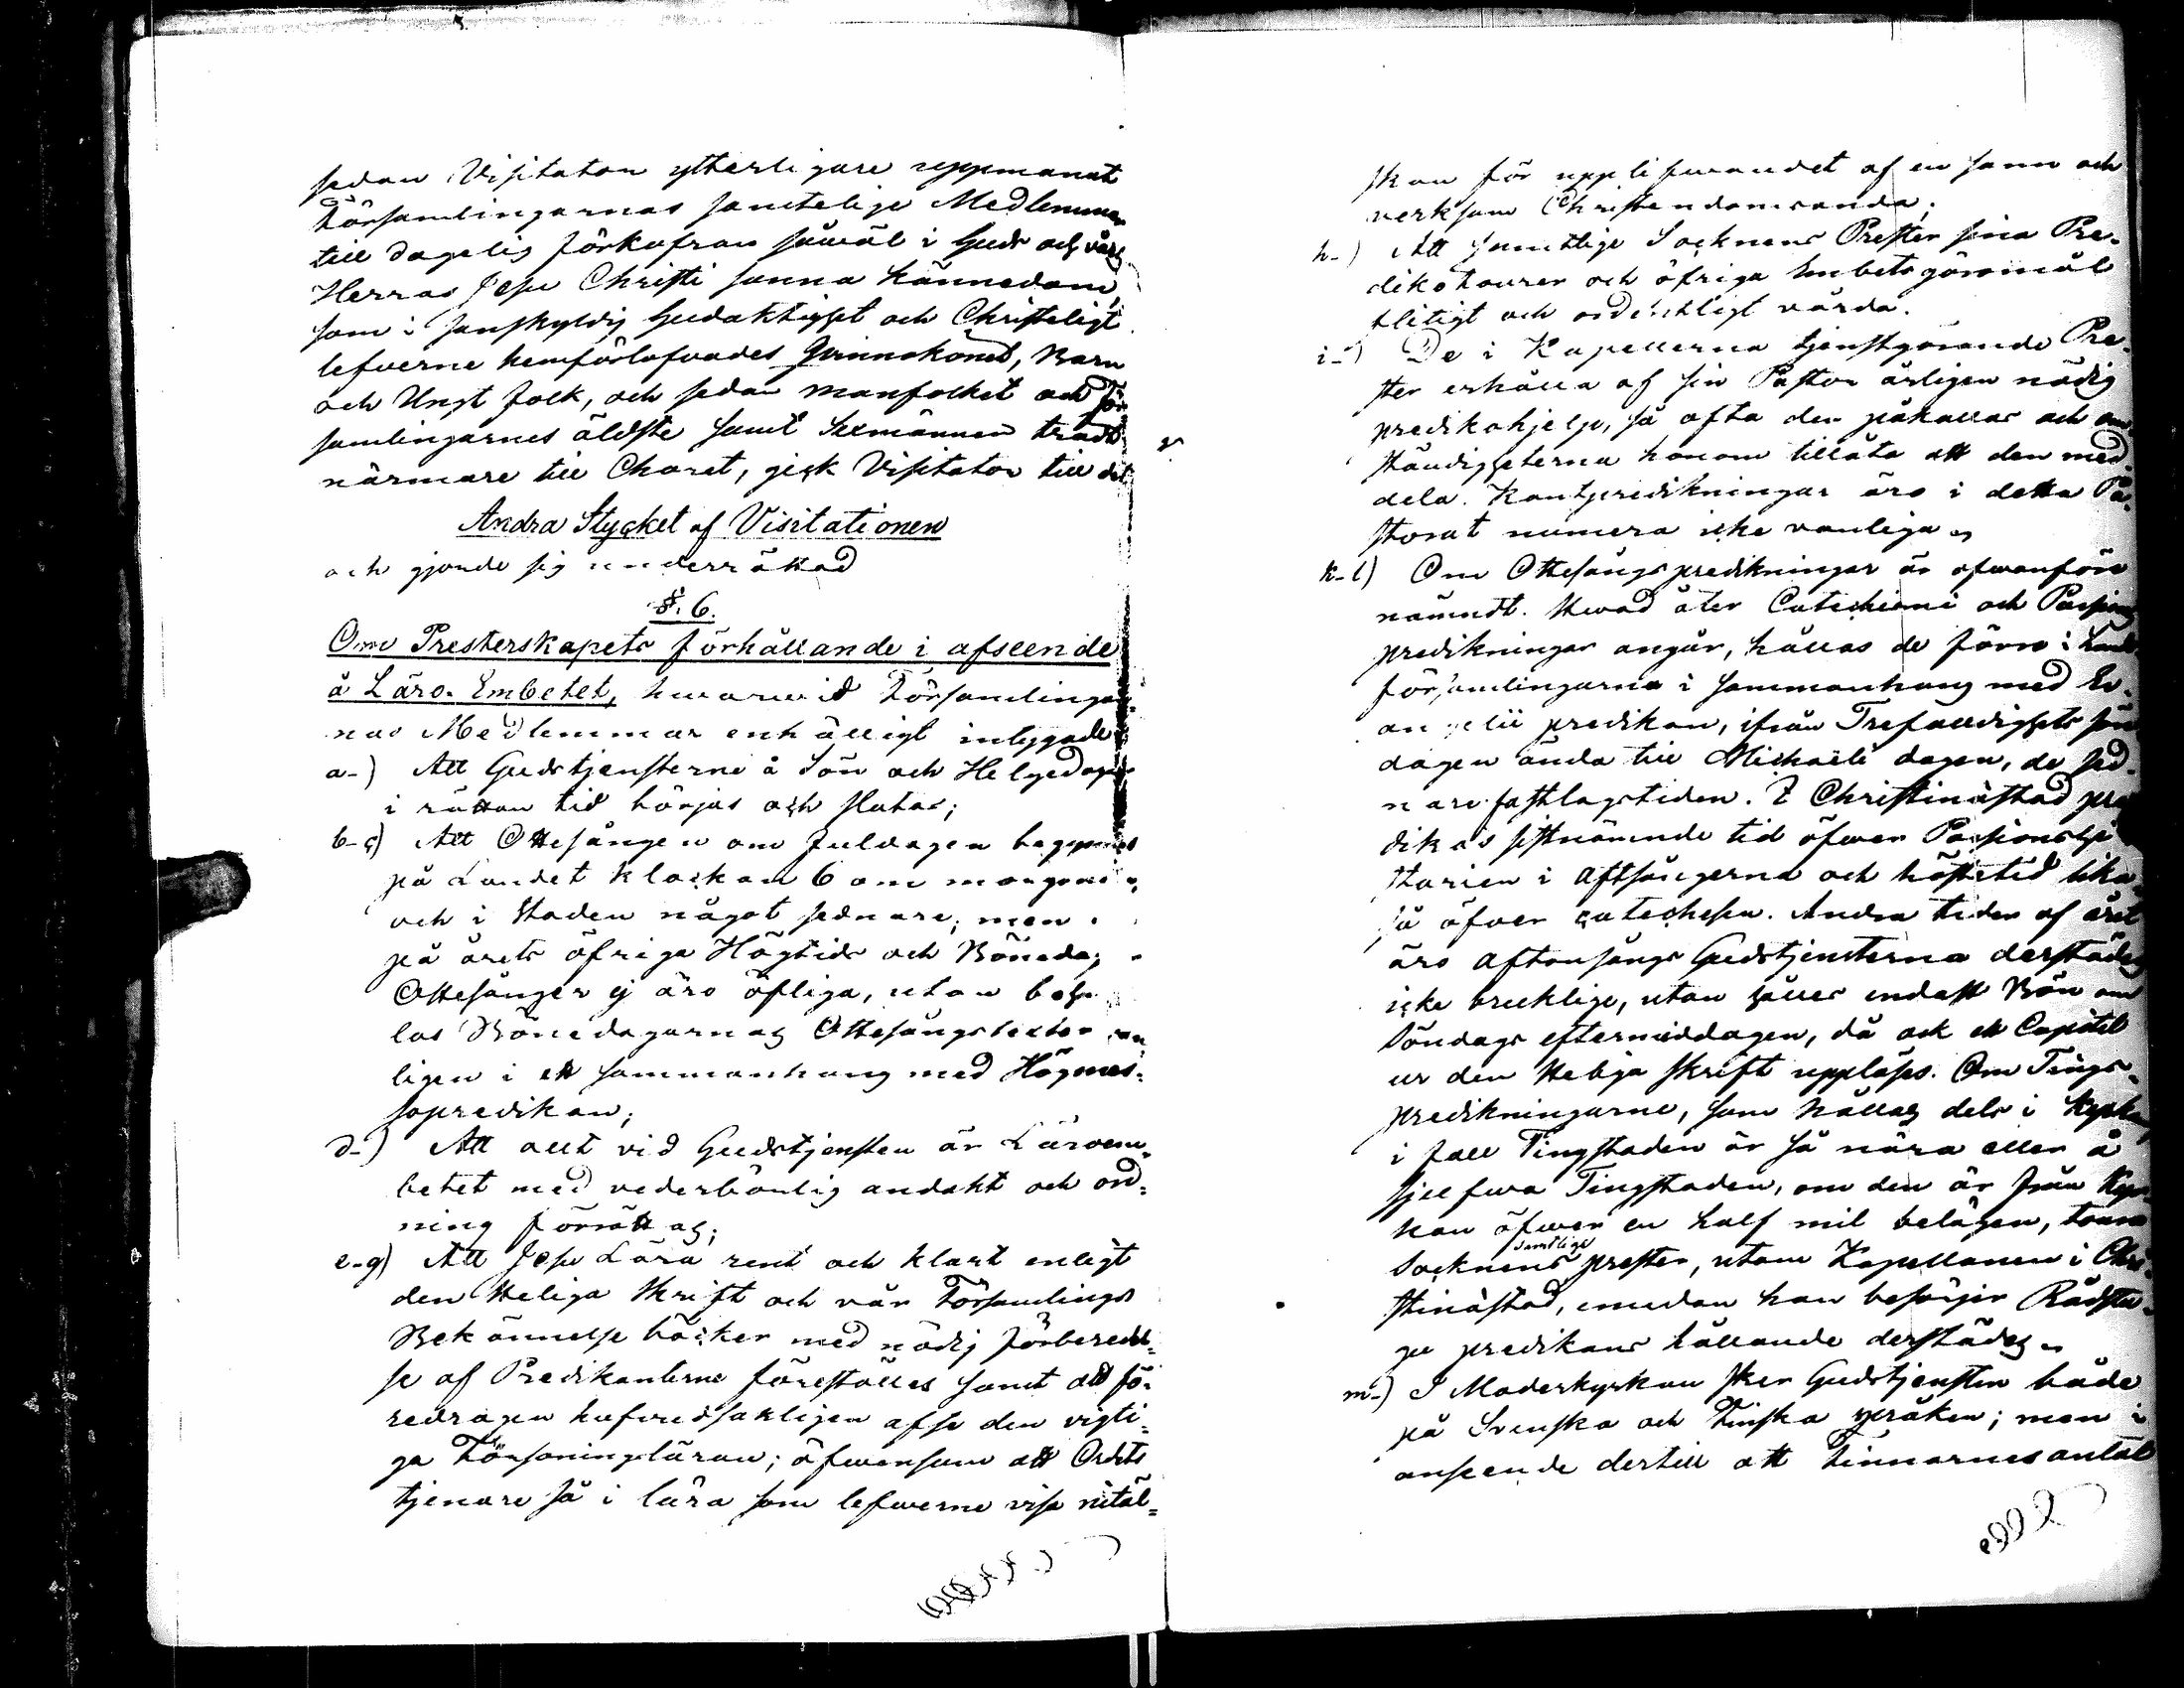 sedan Visitator ytterligare uppmanat
Församlingarnas samtelige Medlemmar
till dagelig förkofran såwäl i Guds och vår
Herras Jesu Christi sanna kännedom,
som i sanskyldig Gudaktighet och Christeligt
lefverne hemförlofvades Qvinnokönet, Barn
och Ungt folk, och sedan manfolket och för-
samlingarnes äldste samt Sexmännen trädt
närmare till Choret, gick Visitator till det
Andra Stycket af Visitationen
och gjorde sig underrättad
§. 6.
Om Presterskapets förhållande i afseende
å Läro-Embetet, hwarwid Församlingar-
nas Medlemmar enhälligt intygade
a-) Att Gudstjensterne å Sön och Helgedagar
i rättan tid börjas och slutas;
b-c) Att Ottesången om Juldagen begynnes
på Landet klockan 6 om morgonen,
och i Staden något sednare; men
på årets öfriga Högtids och Bönedag
Ottesånger ej äro öfliga, utan
las Bönedagarnas Ottesångstexter
ligen i ett sammanhang med Högmes-
sopredikan;
d-) Att allt vid Gudstjensten är Läroem-
betet med vederbörlig andakt och ord-
ning förrättas;
e-g) Att Jesu Lära rent och klart enligt
den Heliga Skrift och vår Församlings
Bekännelse böcker med nödig förberedel-
se af Predikanterne föreställes samt att fö-
redragen hufwudsakligen afse den vigti-
ga Försoningsläran; äfwensom att Ordets
tjenare så i lära som lefwerne visa nitäl-
skan för upplifwandet af en sann och
verksam Christendomsanda;
h-) Att samtlige Socknens Prester sina Pre-
dikoturer och öfriga Embetsgöromål
flitigt och ordentligt vårda.
i-) De i Kapellerna tjenstgörande Pre-
ster erhålla af sin Pastor årligen nödig
predikohjelp, så ofta den påkallas och om-
ständigheterna honom tillåta att den med-
dela. Kontpredikningar äro i detta Pa-
storat numera icke vanliga.
k-l) Om Ottesångspredikningar är ofwanföre
nämndt. Hwad åter Catechismi och Passions
predikningar angår, hållas de förre i Lands
församlingarna i sammanhang med Ev-
angelii predikan, ifrån Trefaldighets sön
dagen ända till Michaëli dagen, de sed-
nare fastlagstiden. I Christinæstad pre
dikas sistnämnde tid öfwer Passionshi
storien i aftsångerna och hösttid lika-
så öfwer catechesen. Andra tider af året
äro aftonsångs Gudstjensterna derstädes
icke brukliga, utan hålles endast Bön om
Söndags eftermiddagen, då ock ett Capitel
ur den Heliga Skrift uppläses. Om Tings-
predikningarne, som hållas dels i Kyrkan,
i fall Tingstaden är så nära eller å
sjelfwa Tingstaden, om den är från Kyr-
kan öfwer en half mil belägen, turas
samtlige
Socknens prester, utom Kapellanen i Chri-
stinæstad, emedan han besörjer Rådstu-
gu predikans hållande derstädes.
m-) I Moderkyrkan sker Gudstjensten både
på Svenska och Finska språken; men i
anseende dertill att Finnarnes antal